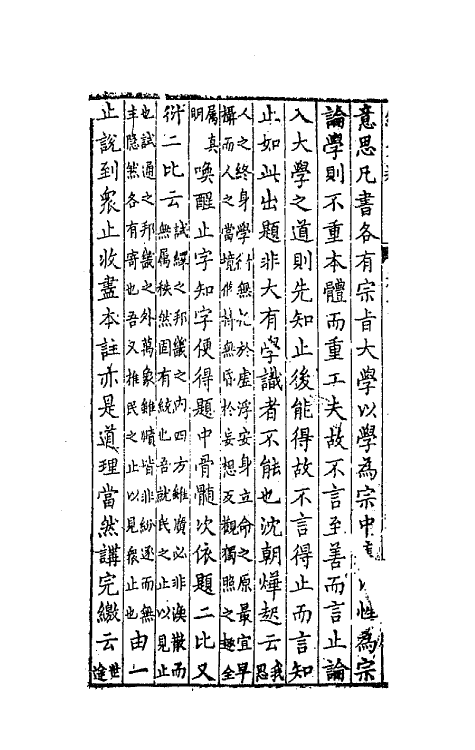 意思凡書各有宗旨大學以學為宗中以性為宗
論學則不重本體而重工夫故不言至善而言止論
入大學之道則先知止後能得故不言得止而言知
止如此出題非大有學識者不能也沈朝燁起云我思
人之終身學行無於虛浮安身立命之原最宜早
攝而人之當境作無於妄想反觀獨照之趣全
屬真明喚醒止字知字便得題中骨髓次依題二比又
衍二比云試繹之邦畿之內四方雖廣必非渙散而
無屬秩然固有統也吾就民之止以見止
也試通之邦畿之外萬象雖賾皆非紛逐而無
主隱然各有寄也吾又推民之止以見衆止也由一
止說到衆止收盡本註亦是道理當然講完繳云世逢